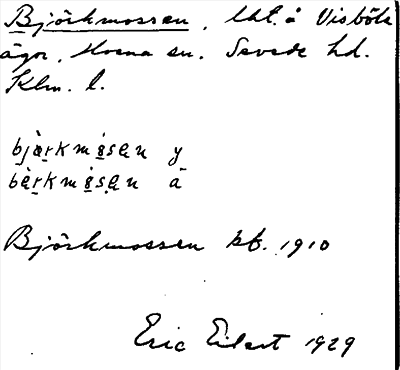 Björkmossen, lht. å Visböle
ägor, Morna sn. Sevede hd.
Klm. l.
bjærkmosen y
bærkmosen ä
Björkmossen kt. 1910
Eric Eilert 1929